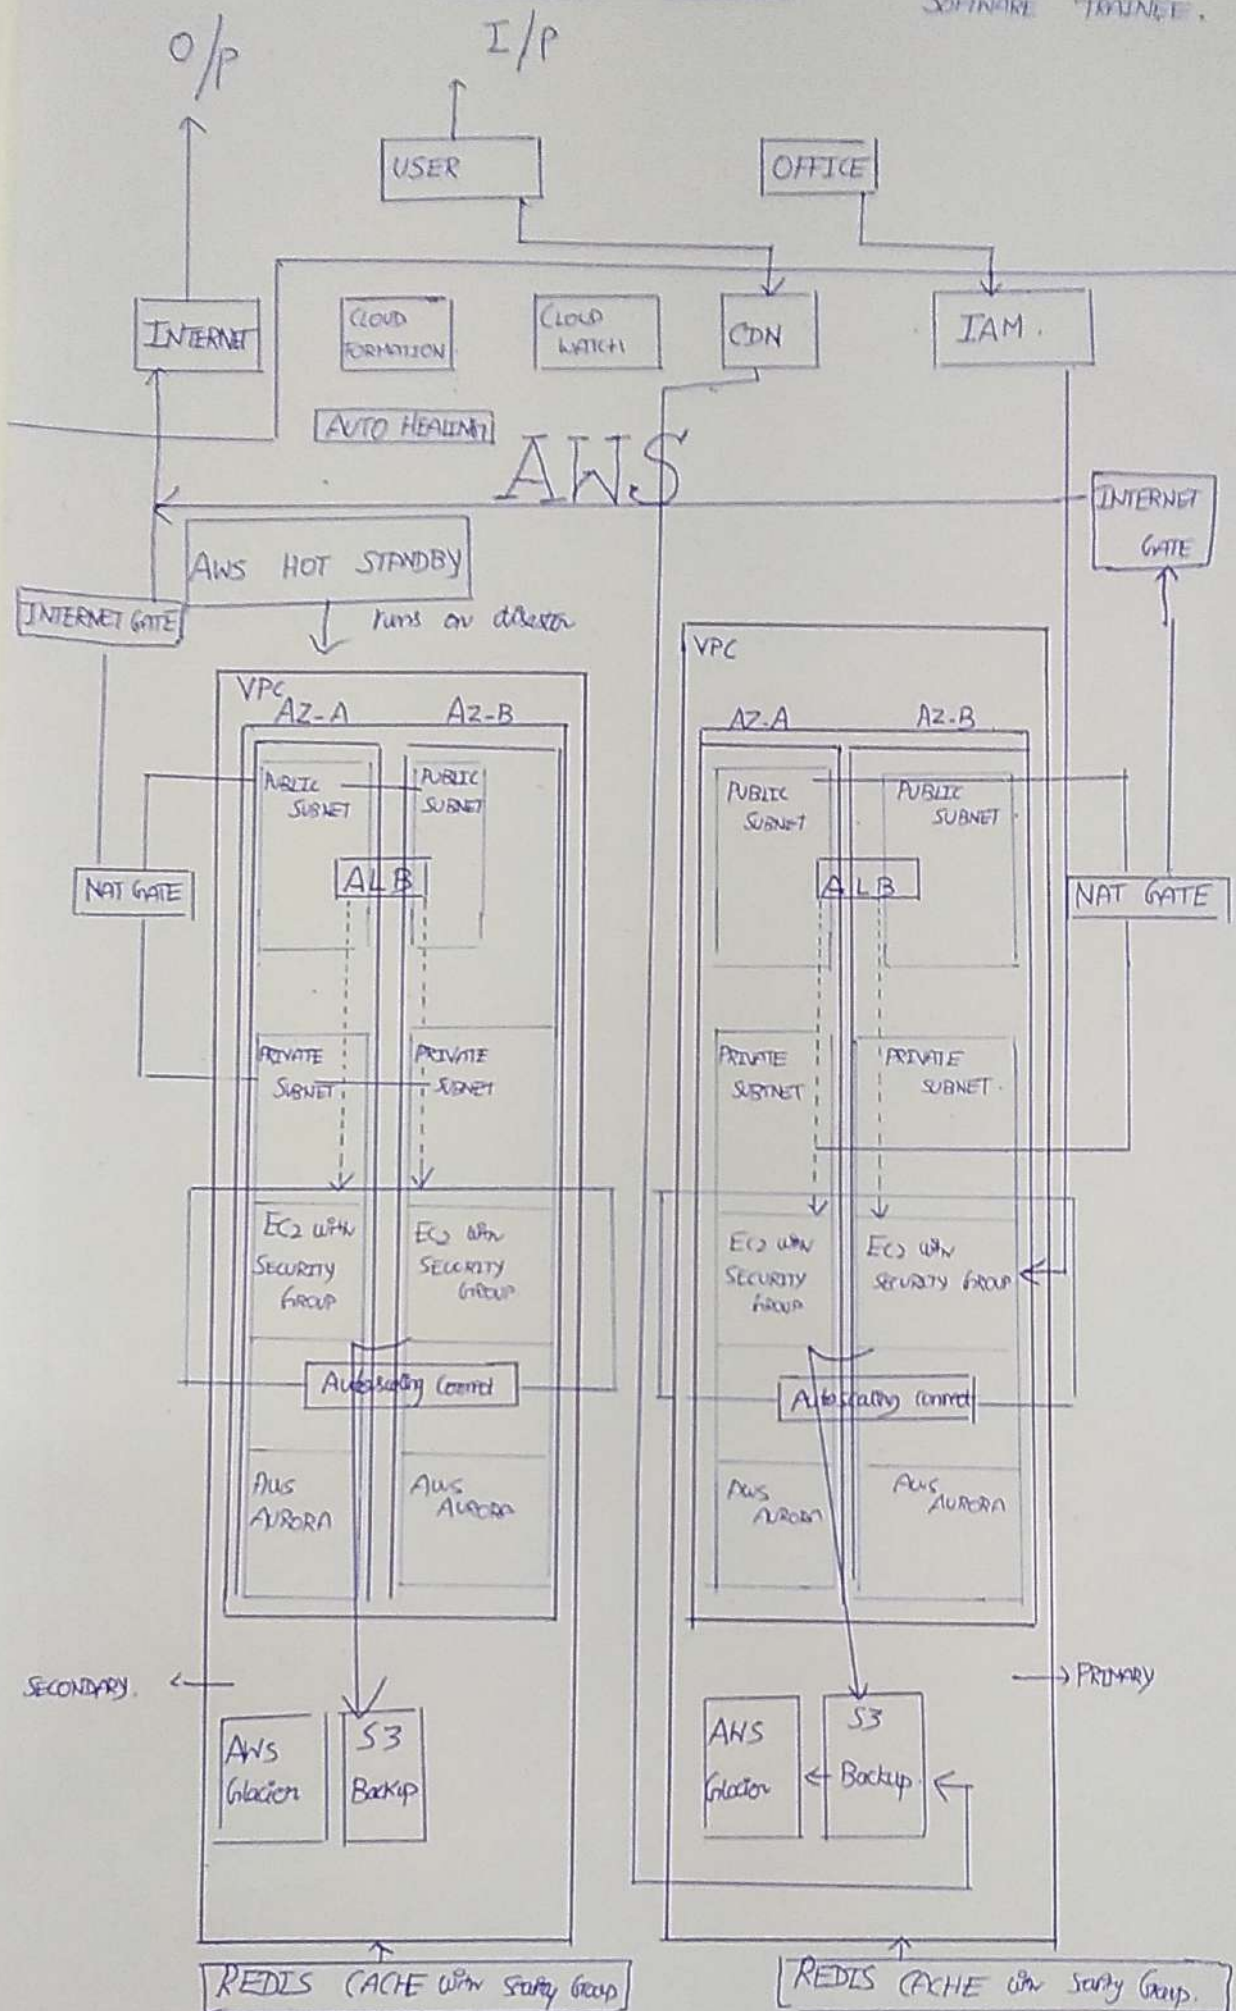 SOFTWARE TRAINEE.
O/P
I/P
USER
OFFICE
INTERNET
CLOUD
FORMATION
CLOUD
WATCH
CDN
IAM.
AUTO HEALING
AWS
INTERNET
GATE
AWS HOT STANDBY
INTERNET GATE
runs on
VPC
AZ-A
AZ-B
PUBLIC
SUBNET
PUBLIC
SUBNET
NAT GATE
ALB
PRIVATE
SUBNET
PRIVATE
SUBNET
EC2 with
SECURITY
GROUP
EC2 with
SECURITY
GROUP
Autoscaling
AWS
AURORA
AWS
AURORA
SECONDARY.
AWS
Glacier
S3
Backup
REDIS CACHE with Group
VPC
AZ-A
AZ-B
PUBLIC
SUBNET
PUBLIC
SUBNET
ALB
NAT GATE
PRIVATE
SUBTNET
PRIVATE
SUBNET.
EC2 with
SECURITY
GROUP
EC2 with
SECURITY GROUP
Autoscaling
AWS
AURORA
AWS
AURORA
PRIMARY
AWS
Glacier
S3
Backup.
REDIS CACHE with Group.